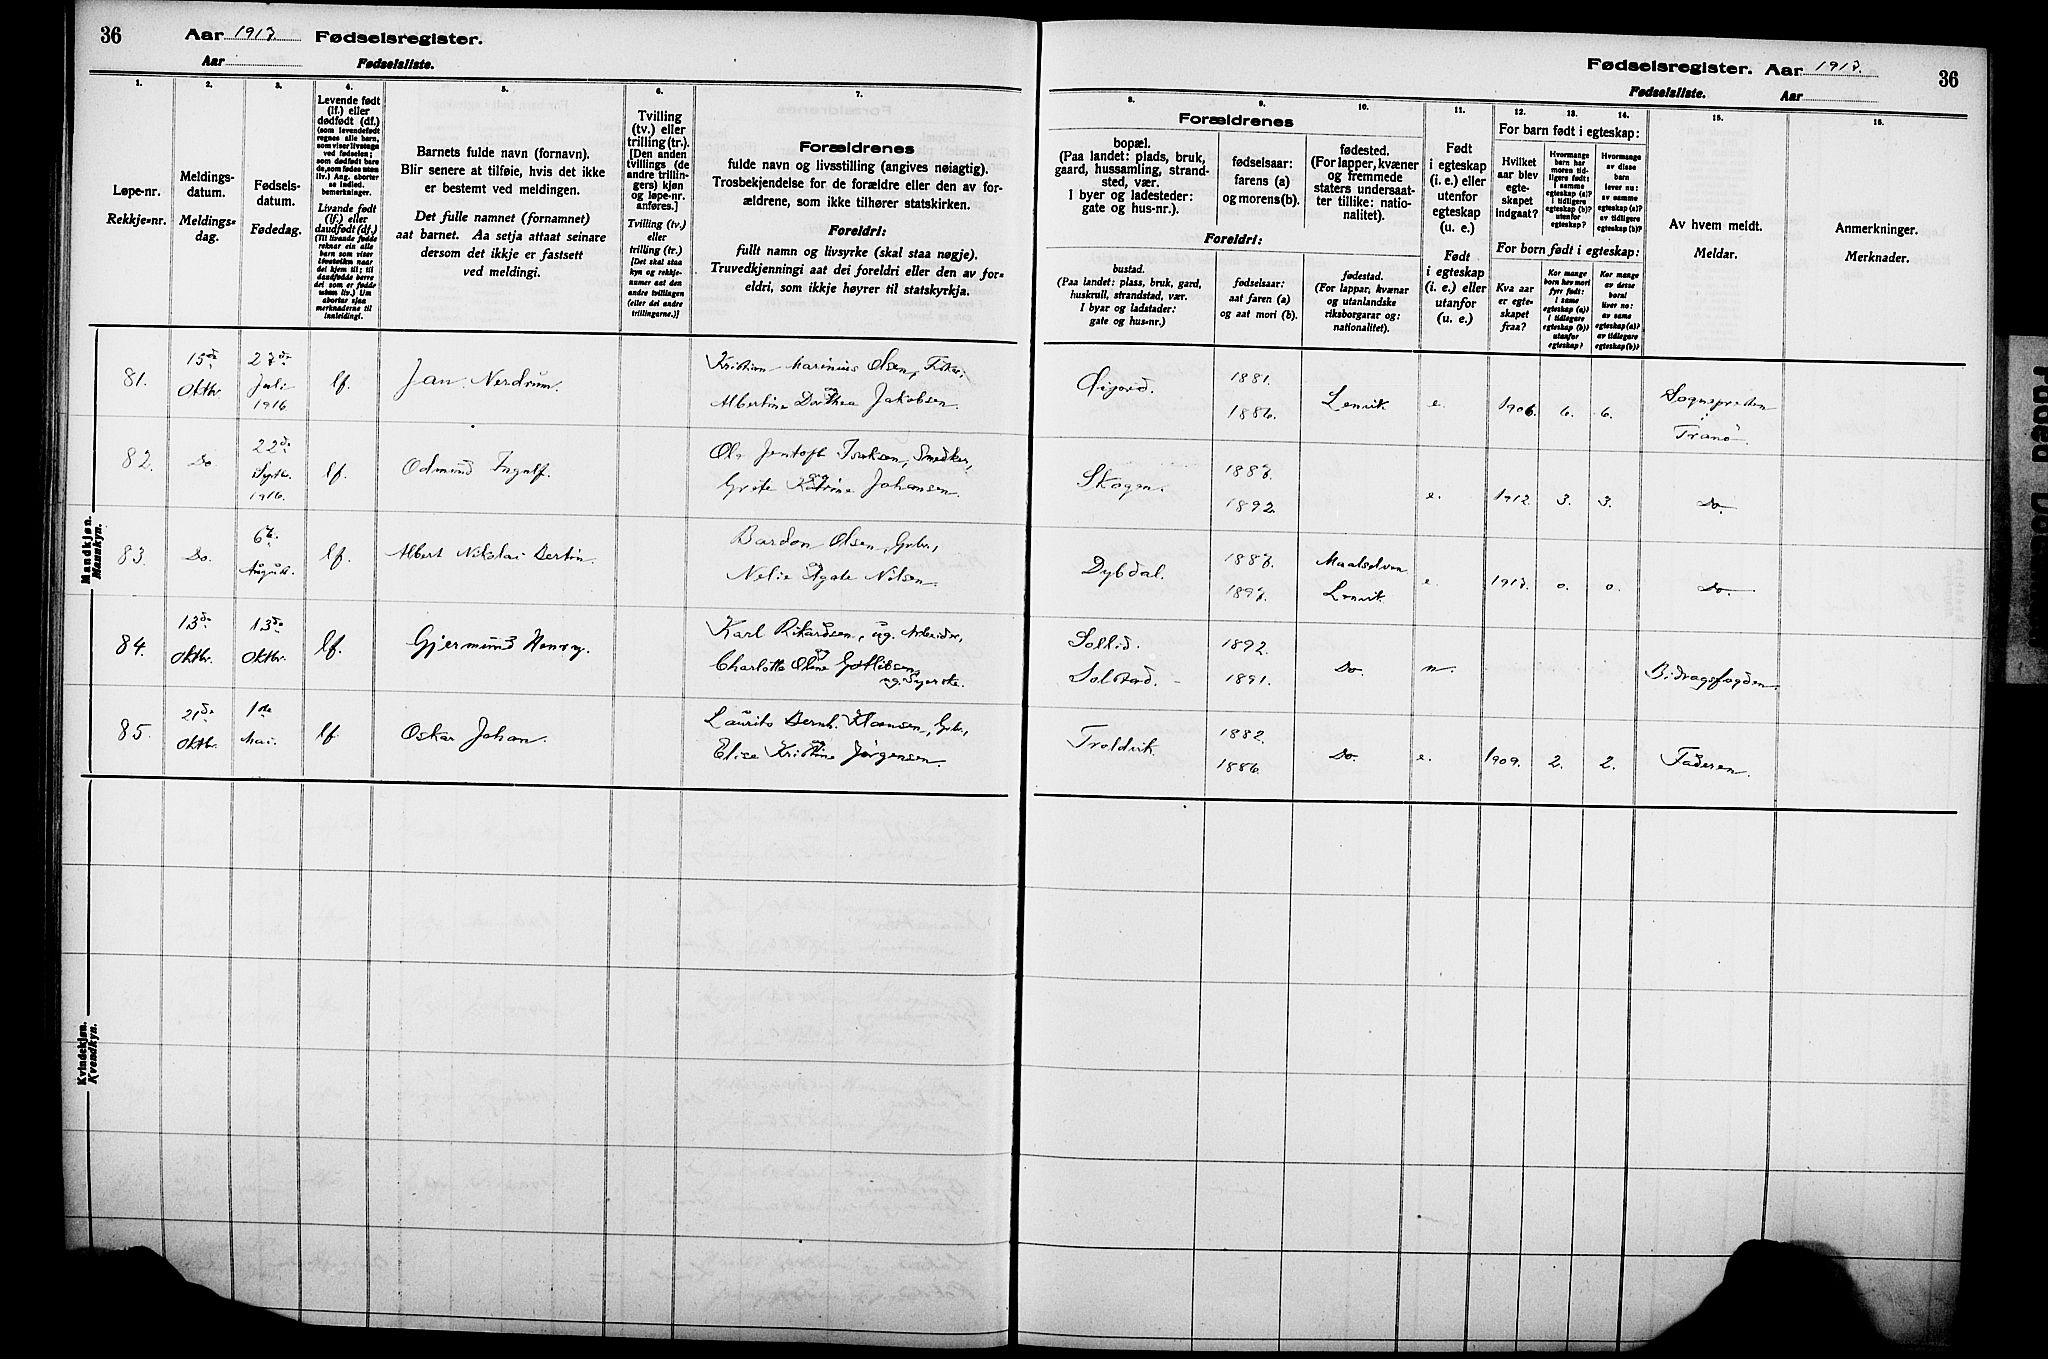 36 Aar 1917. Fødselsregister.
Aar Fødselsliste.
1. 2. 3. 4. 5. 6. 7.
Løpe-nr.
Rekkje-nr.
Meldings-
datum.
Meldings-
dag.
Fødsels-
datum.
Fødedag.
Levende født
(lf.) eller
dødfødt (df.)
(som levendefødt
regnes alle barn,
som viser livstegn
ved fødselen;
som dødfødt bare
de, som fødes uten
liv.) Ang. aborter
se indled.
bemerkninger.
Livande født
(lf.) eller
daudfødt (df.)
(Til livande fødde
reknar ein alle
barn som viser
livsteikn naar
dei kjem til; til
daudfødde berre
dei som er fødde
utan liv.) Um
abortar sjaa
merknaderne til
innleidingi.
Barnets fulde navn (fornavn).
Blir senere at tilføie, hvis det ikke
er bestemt ved meldingen.
Det fulle namnet (fornamnet)
aat barnet. Aa setja attaat seinare
dersom det ikkje er fastsett
ved meldingi.
Tvilling
(tv.) eller
trilling (tr.).
[Den anden
tvillings (de
andre trillin-
gers) kjøn
og løpe-nr.
anføres.]
Tvilling (tv.)
eller
trilling (tr.)
[Det skal staa
kyn og rekkje-
numer aat den
andre tvillingen
(eller dei andre
trillingarne.)]
Forældrenes
fulde navn og livsstilling (angives nøiagtig).
Trosbekjendelse for de forældre eller den av for-
ældrene, som ikke tilhører statskirken.
Foreldri:
fullt namn og livsyrke (skal staa nøgje).
Truvedkjenningi aat dei foreldri eller den av for-
eldri, som ikkje høyrer til statskyrkja.
Mandkjøn.
Mannkyn.
81. 15de Oktbr. 27de Juli 1916 lf. Jan Nerdrum. Kristian Marinius Olsen, Fisker,
og Albertine Dorthea Jakobsen.
82. Do 22de Septbr. 1916. lf. Odmund Ingolf. Ole Jentoft Isaksen, Smedker,
og Grete Katrine Johansen.
83. Do. 6te August. lf. Albert Nikolai Bertin. Bardon Olsen, Gbr.,
og Nelie Agate Nilsen.
84. 13de Oktbr. 13de Oktbr. lf. Gjermund Henry. Karl Rikardsen, ug. Arbeider,
og Charlotte Oline Gotliebsen
ug. Syerske.
85. 21de Oktbr. 1ste Mai. lf. Oskar Johan. Laurits Bernh. Klaussen, Gbr.,
og Elise Kristine Jørgensen.
Kvindekjøn.
Kvendkyn.
Fødselsregister. Aar 1917. 36
Fødselsliste. Aar
8. 9. 10. 11. 12. 13. 14. 15. 16.
Forældrenes
bopæl.
(Paa landet: plads, bruk,
gaard, hussamling, strand-
sted, vær.
I byer og ladesteder:
gate og hus-nr.).
fødselsaar:
farens (a)
og morens(b).
fødested.
(For lapper, kvæner
og fremmede
staters undersaat-
ter tillike: natio-
nalitet).
Foreldri:
bustad.
(Paa landet: plass, bruk, gard,
huskrull, strandstad, vær.
I byar og ladstader:
gate og hus-nr.)
fødselsaar:
aat faren (a)
og aat mori (b).
fødestad.
(For lappar, kvænar
og utanlandske
riksborgarar og:
nationalitet).
Født
i egteskap
(i. e.) eller
utenfor
egteskap
(u. e.)
Født
i egteskap
(i. e.) eller
utanfor
(u. e.)
For barn født i egteskap:
Hvilket
aar blev
egte-
skapet
indgaat?
Hvormange
barn har
moren tid-
ligere født:
I samme
egteskap (a)?
I tidligere
egteskap (b)?
utenfor
egteskap?
Hvormange
av disse
barn
lever nu:
av samme
egteskap (a)?
av tidligere
egteskap (b)?
For born født i egteskap:
Kva aar
er egte-
skapet
fraa?
Kor mange
born hev mori
fyrr født:
I same
egteskap (a)?
I tidlegare
egteskap (b)?
utanfor
egteskap?
Kor mange
av desse
borni
liver no:
av same
egteskap (a)?
av tidlegare
egteskap (b)?
Av hvem meldt.
Meldar.
Anmerkninger.
Merknader.
Øijord. 1881. 1886. Lenvik e. 1906. 6. 6. Sognepresten i Tranø.
Skogen. 1887. 1892. e. 1912. 3. 3. Do.
Dybdal. 1887. 1897. Maalselven Lenvik e. 1917. 0. 0. Do.
Sollid. 1892.
Solstad. 1891. Do. u. Bidragsfogden.
Troldvik. 1882. 1886. Do. e. 1909. 2. 2. Faderen.